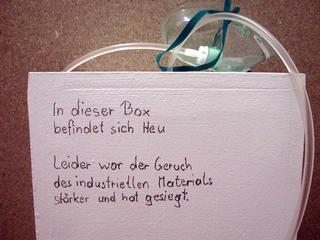 In dieser Box
befindet sich Heu
Leider war der Geruch
des industriellen Materials
stärker und hat gesiegt.